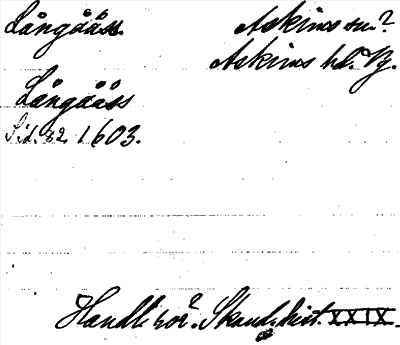 Långååss. Askims sn?
Askims hd. Bg.
Långååss
Sid. 32. 1603.
Handl. rör. Skand. hist. XXIX.